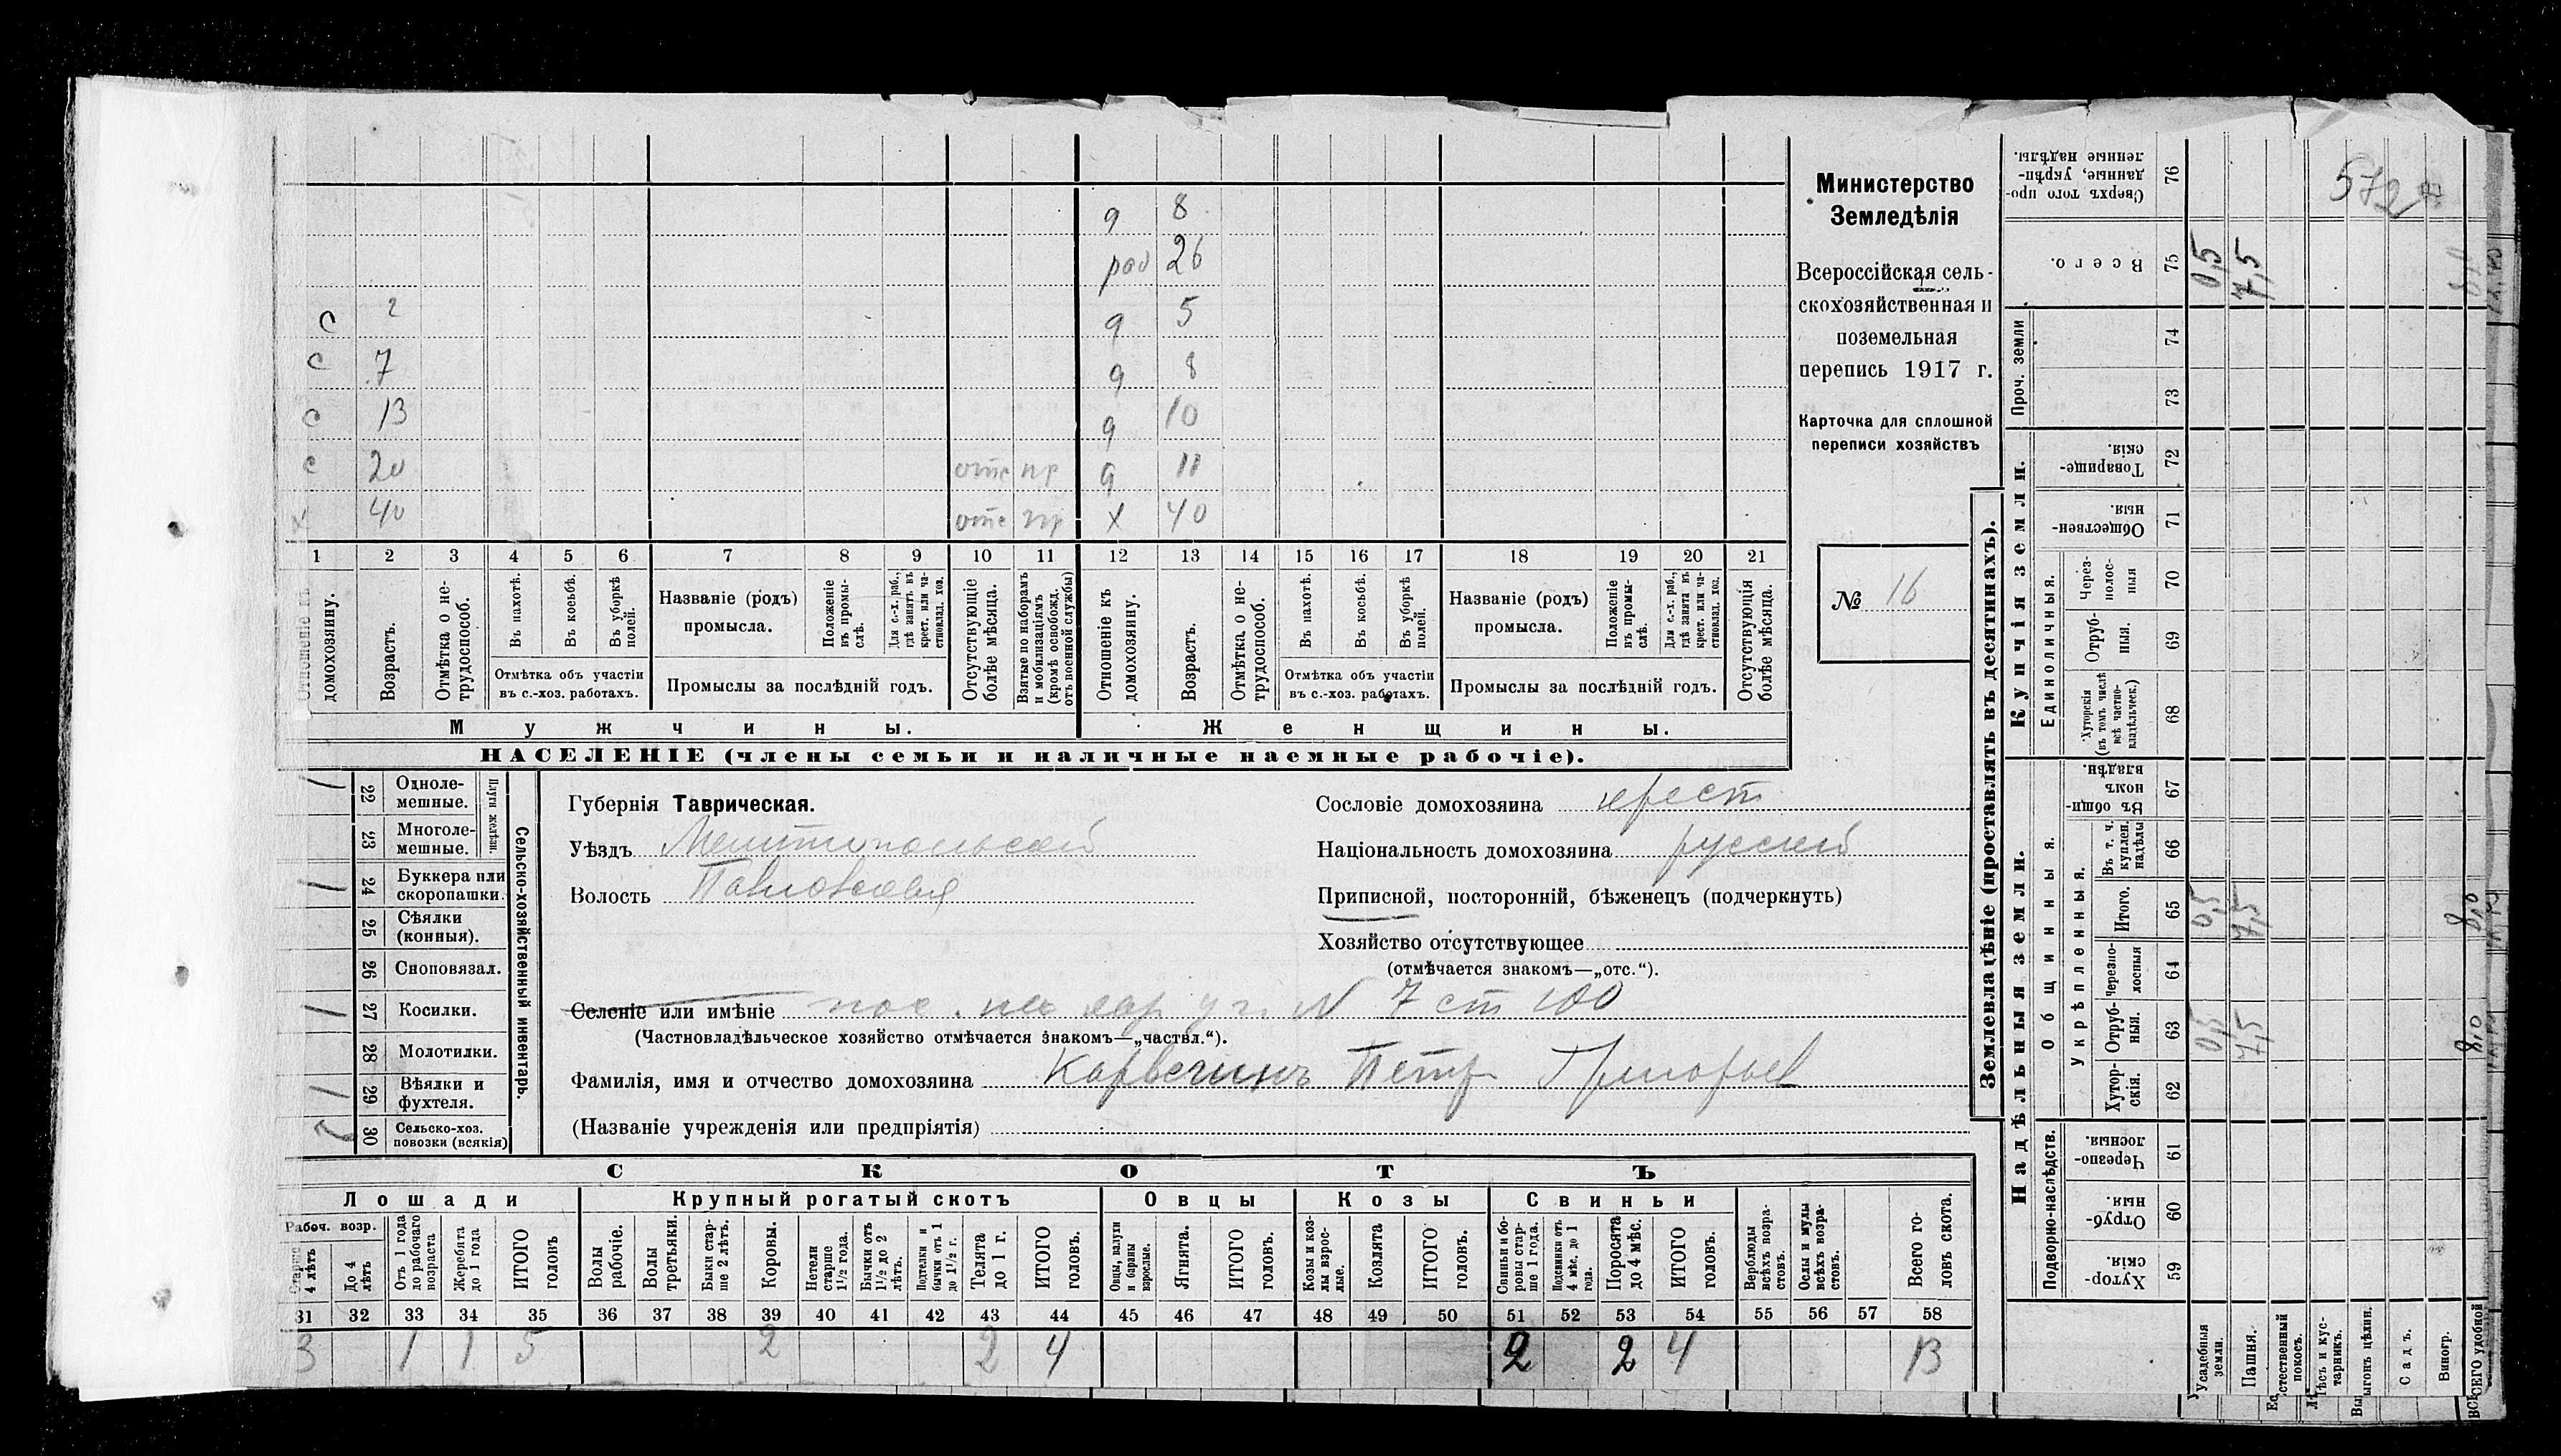 572
9 8
раб 26
С 2 9 5
С 7 9 8
С 13 9 10
С 20 отс пр 9 11
х 40 отс пр х 40
1 2 3 4 5 6 7 8 9 10 11 12 13 14 15 16 17 18 19 20 21
Отношеніе къ домохозяину.
Возрастъ.
Отмѣтка о не-
трудоспособ.
Въ пахотѣ.
Въ косьбѣ.
Въ уборкѣ
полей.
Отмѣтка объ участіи
въ с.-хоз. работахъ.
Названіе (родъ)
промысла.
Положеніе
въ промы-
слѣ.
Для с.-х. раб.,
гдѣ занятъ въ
крест. или ча-
стновлад. хоз.
Промыслы за послѣдній годъ.
Отсутствующіе
болѣе мѣсяца.
Взятые по наборамъ
и мобилизаціямъ
(кромѣ освобожд.
отъ военной службы)
Отношеніе къ
домохозяину.
Возрастъ.
Отмѣтка о не-
трудоспособ.
Въ пахотѣ.
Въ косьбѣ.
Въ уборкѣ
полей.
Отмѣтка объ участіи
въ с.-хоз. работахъ.
Названіе (родъ)
промысла.
Положеніе
въ промы-
слѣ.
Для с.-х. раб.,
гдѣ занята въ
крест. или ча-
стновлад. хоз.
Промыслы за послѣдній годъ.
Отсутствующія
болѣе мѣсяца.
Мужчины.
Женщины.
НАСЕЛЕНІЕ (члены семьи и наличные наемные рабочіе).
Министерство
Земледѣлія
Всероссійская сель-
скохозяйственная и
поземельная
перепись 1917 г.
Карточка для сплошной
переписи хозяйствъ
№ 16
1 22 Однолe-
мешные.
23 Многоле-
мешные.
Плуги желѣзн.
1 24 Буккера или
скоропашки.
25 Сѣялки
(конныя).
26 Сноповязал.
1 27 Косилки.
28 Молотилки.
1 29 Вѣялки и
фухтеля.
30 Сельско-хоз.
повозки (всякія)
Сельско-хозяйственный инвентарь.
Губернія Таврическая.
Уѣздъ Мелитопольской
Волость Павловская
Сословіе домохозяина крест
Національность домохозяина русскій
Приписной, посторонній, бѣженецъ (подчеркнуть)
Хозяйство отсутствующее
(отмѣчается знакомъ—„отс.“).
Селеніе или имѣніе пос. на хар. уч. N 7 ст 100
(Частновладѣльческое хозяйство отмѣчается знакомъ—„частвл.“).
Фамилія, имя и отчество домохозяина Петр Григорьев
(Названіе учрежденія или предпріятія)
СКОТЪ
Лошади Крупный рогатый скотъ Овцы Козы Свиньи
Рабоч. возр.
Старше
4 лѣтъ
До 4
лѣтъ
Отъ 1 года
до рабочаго
возраста
Жеребята
до 1 года
ИТОГО
головъ
Волы
рабочіе.
Волы
третьяки.
Быки стар-
ше 2 лѣтъ.
Коровы.
Нетели
старше
1½ года.
Бычки отъ
1½ до 2
лѣтъ.
Подтелки и
бычки отъ 1
до 1½ г.
Телята
до 1 г.
ИТОГО
головъ.
Овцы, валухи
и бараны
взрослые.
Ягнята.
ИТОГО
головъ.
Козы и коз-
лы взрос-
лые.
Козлята
ИТОГО
головъ.
Свиньи и бо-
ровы стар-
ше 1 года.
Подсвинки отъ
4 мѣс. до 1
года.
Поросята
до 4 мѣс.
ИТОГО
головъ.
Верблюды
всѣхъ возра-
стовъ.
Ослы и мулы
всѣхъ возра-
стовъ.
Всего го-
ловъ скота.
31 32 33 34 35 36 37 38 39 40 41 42 43 44 45 46 47 48 49 50 51 52 53 54 55 56 57 58
3 1 1 5 2 2 4 2 2 4 13
Землевладѣніе (проставлять въ десятинахъ).
Надѣльныя земли.
Купчія земли.
Проч. земли
Подворно-наслѣдств.
Общинныя.
Укрѣпленныя.
Единоличныя.
Сверхъ того про-
данные, укрѣп-
ленные надѣлы. 76
Всего. 75 0,5 7,5
74
73
Товарище-
скія. 72
Обществен-
ныя. 71
Через-
полос-
ныя 70
Отруб-
ныя. 69
Хуторскія
(въ томъ числѣ
всѣ частно-
владѣльческ.) 68
Въ общи-
номъ
владѣн. 67
Въ т. ч.
куплен.
надѣлы 66
Итого. 65 0,5 7,5 8,0
Черезпо-
лосныя 64
Отруб-
ныя. 63 0,5 7,5 8,0
Хутор-
скія. 62
Черезпо-
лосныя. 61
Отруб-
ныя. 60
Хутор-
скія. 59
Усадебныя
земли.
Пашня.
Естественный
покосъ.
Лѣсъ и кус-
тарникъ.
Выгонъ цѣлин.
Садъ.
Виногр.
ВСЕГО удобной